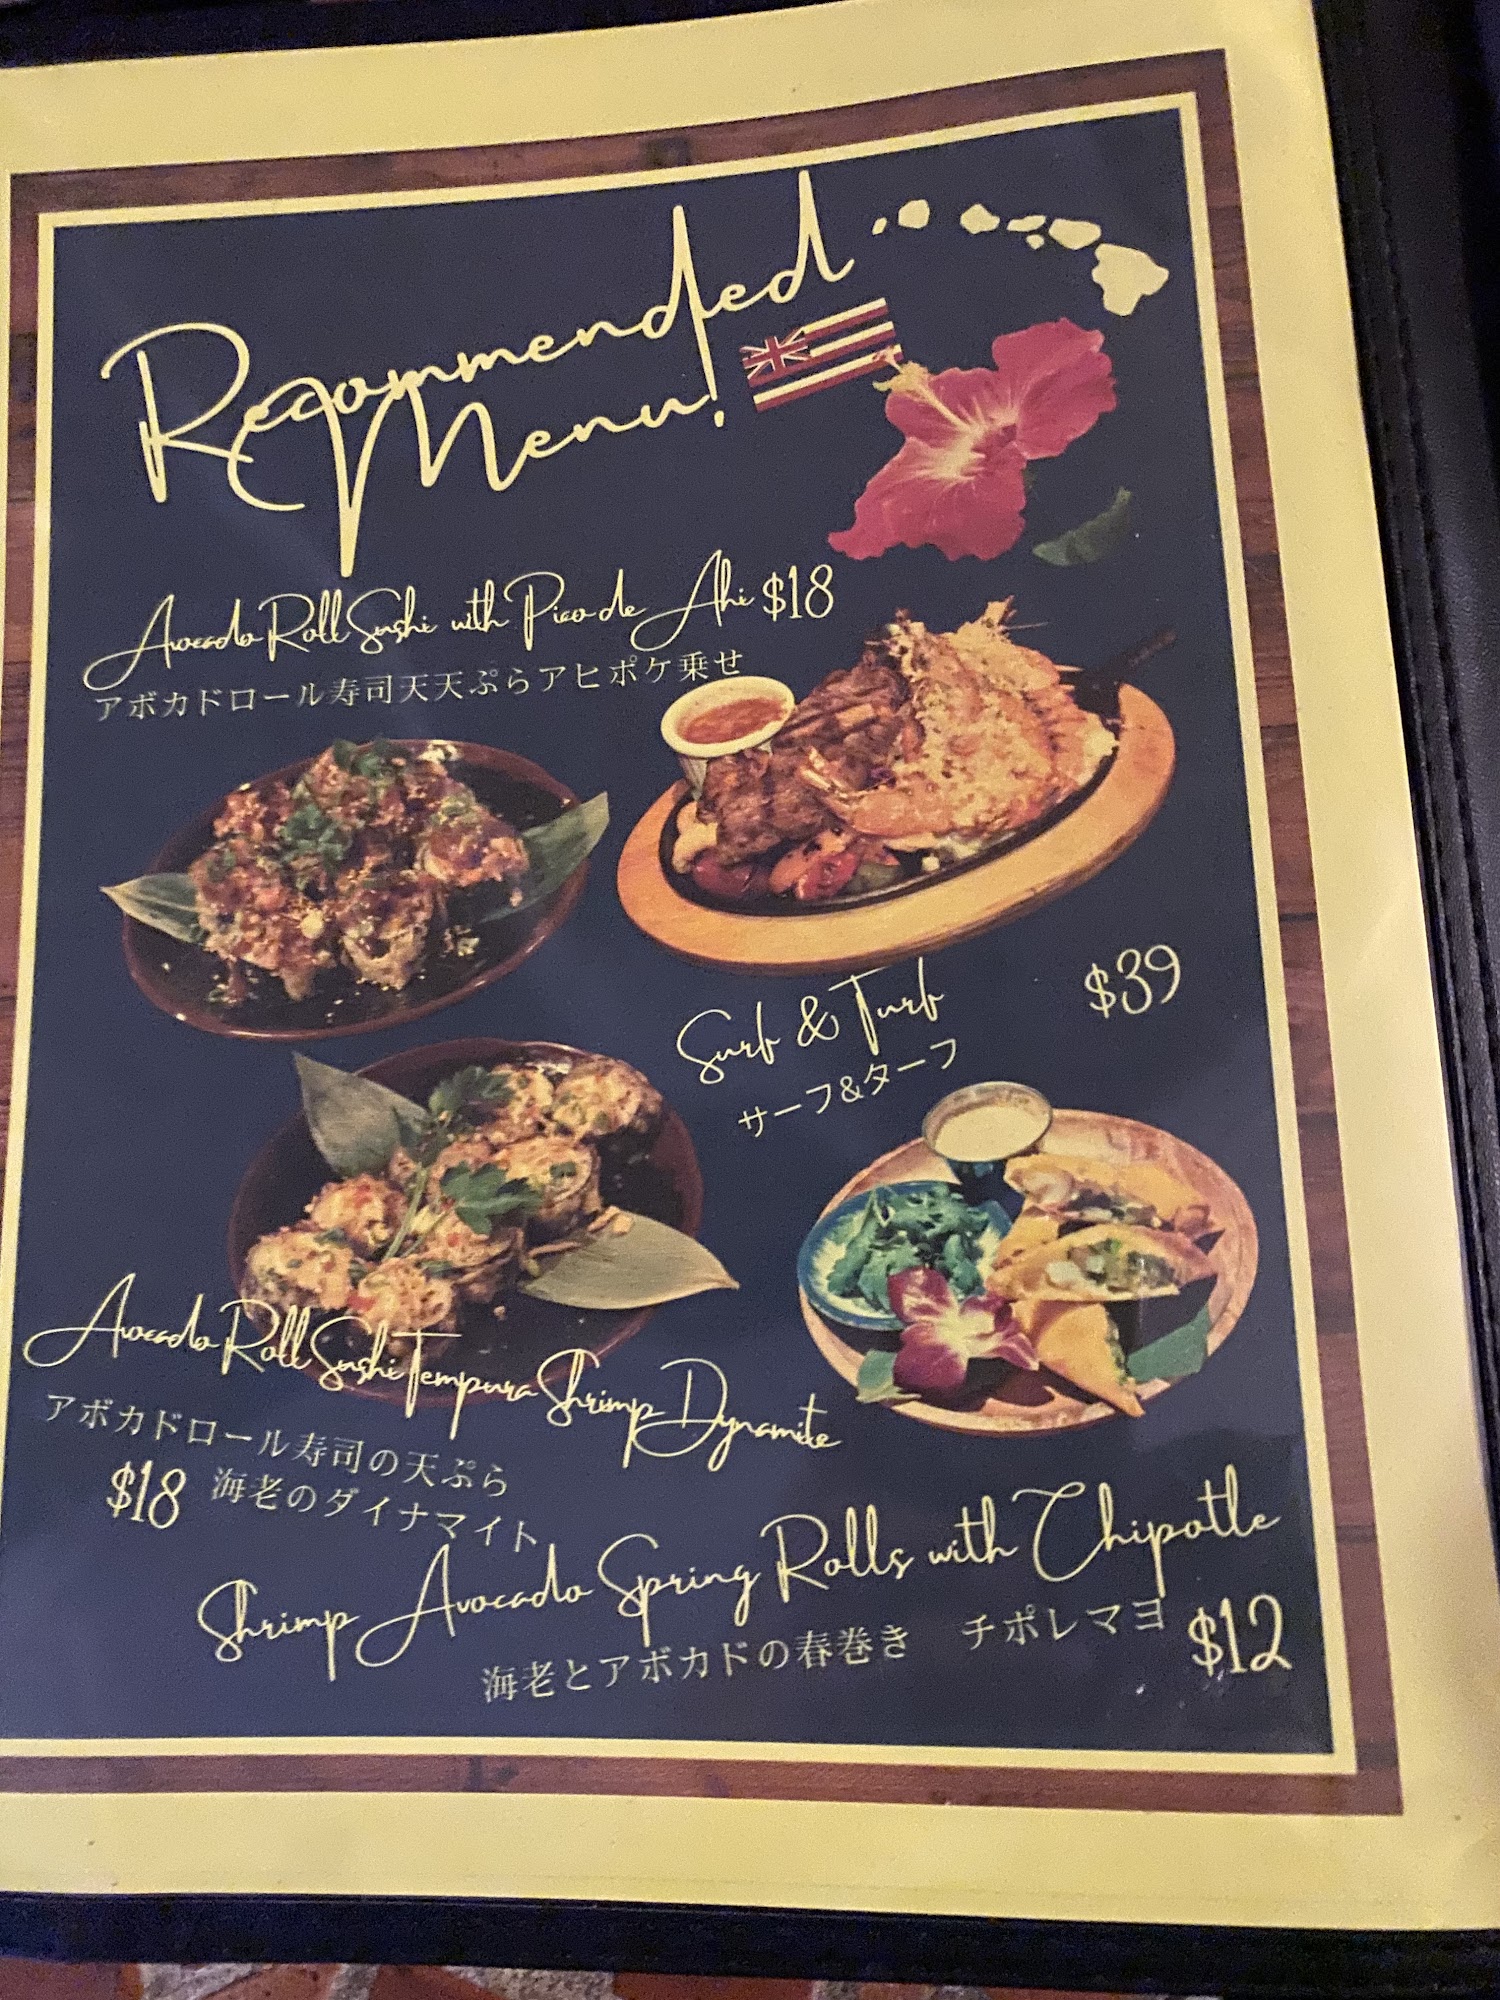 Recommended
Menu!
Avocado Roll Sushi with Pico de Ahi $18
アボカドロール寿司天天ぷらアヒポケ乗せ
Surf & Turf $39
サーフ&ターフ
Avocado Roll Sushi Tempura Shrimp Dynamite
アボカドロール寿司の天ぷら
$18 海老のダイナマイト
Shrimp Avocado Spring Rolls with Chipotle
海老とアボカドの春巻き チポレマヨ $12